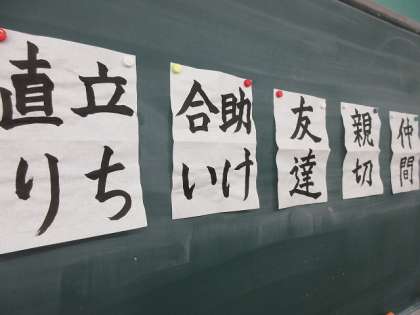 仲間
親切
友達
助け
合い
立ち
直り